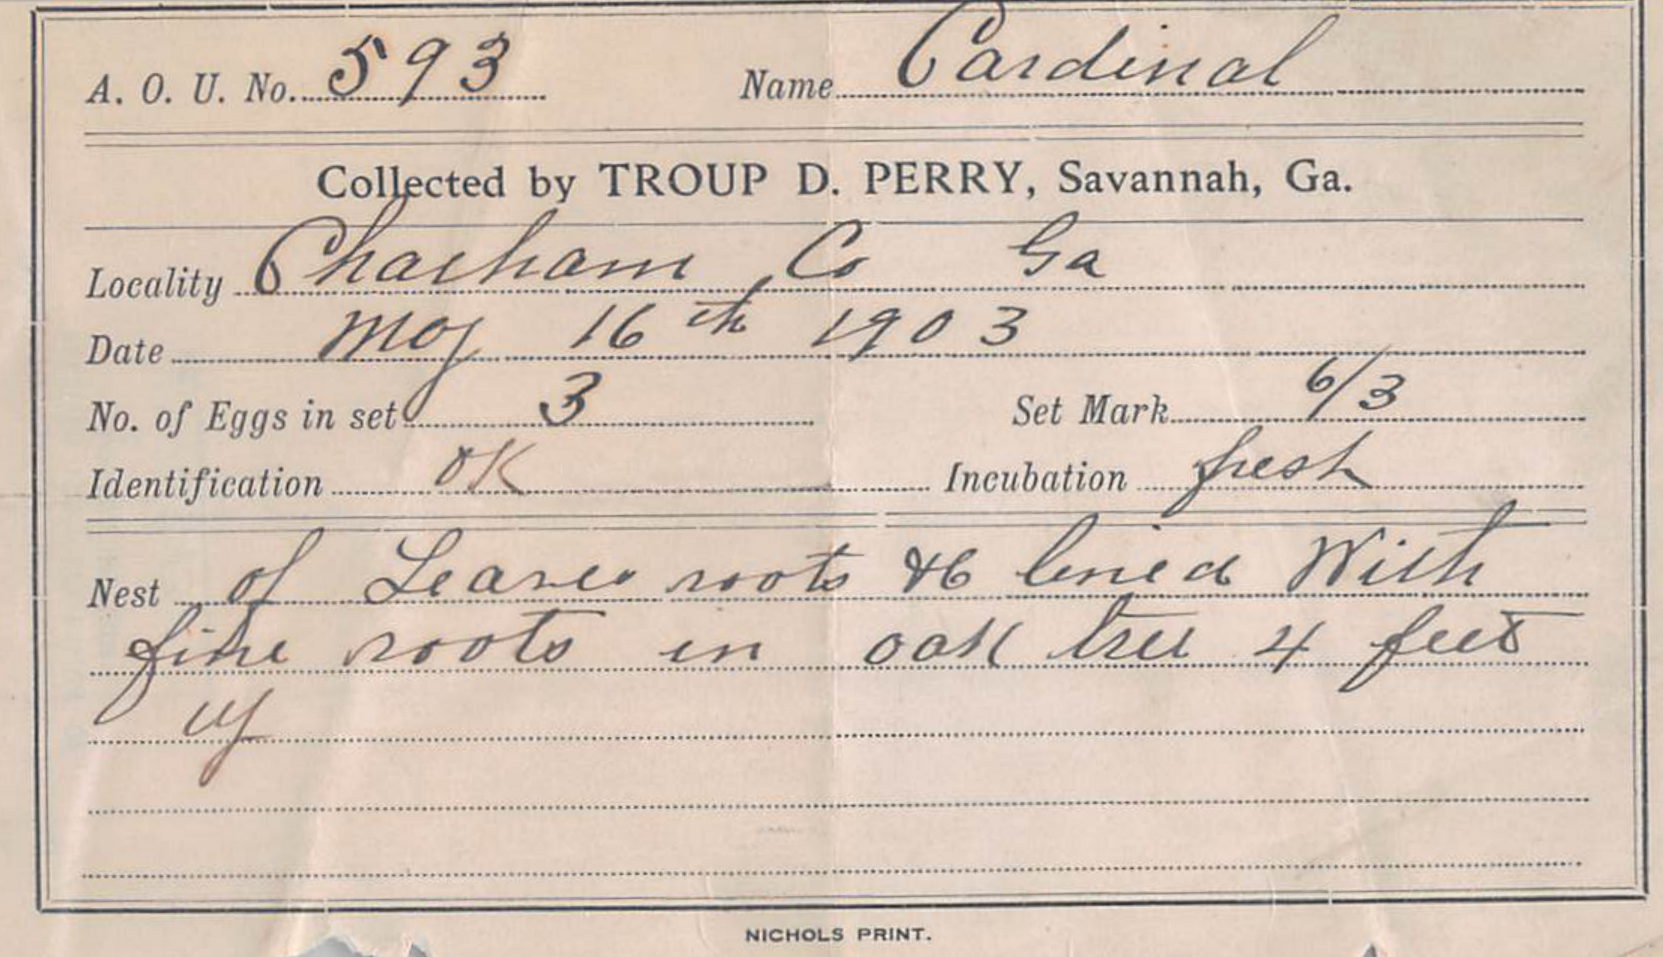 A. O. U. No. 593 Name Cardinal
Collected by TROUP D. PERRY, Savannah, Ga.
Locality Chatham Co Ga
Date May 16th 1903
No. of Eggs in set 3 Set Mark 6/3
Identification OK Incubation fresh
Nest of Leaves roots &c lined With
fine roots in oak tree 4 feet
up
NICHOLS PRINT.